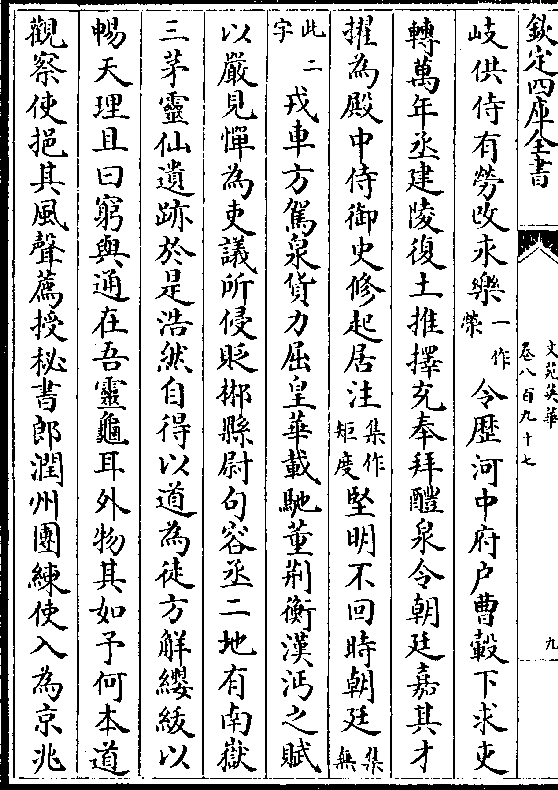 欽定四庫全書
文苑英華
卷八百九十七
九
岐供侍有勞改永樂一作榮令歴河中府户曹轂下求吏
轉萬年丞建陵復土推擇充奉拜醴泉令朝廷嘉其才
擢為殿中侍御史修起居注集作矩度堅明不回時朝廷集無
此二字戎車方駕泉貨力屈皇華載馳董荆衡漢沔之賦
以嚴見憚為吏議所侵貶郴縣尉句容丞二地有南嶽
三茅靈仙遺跡於是浩然自得以道為徒方解纓紱以
暢天理且曰窮與通在吾靈龜耳外物其如予何本道
觀察使挹其風聲薦授秘書郎潤州團練使入為京兆